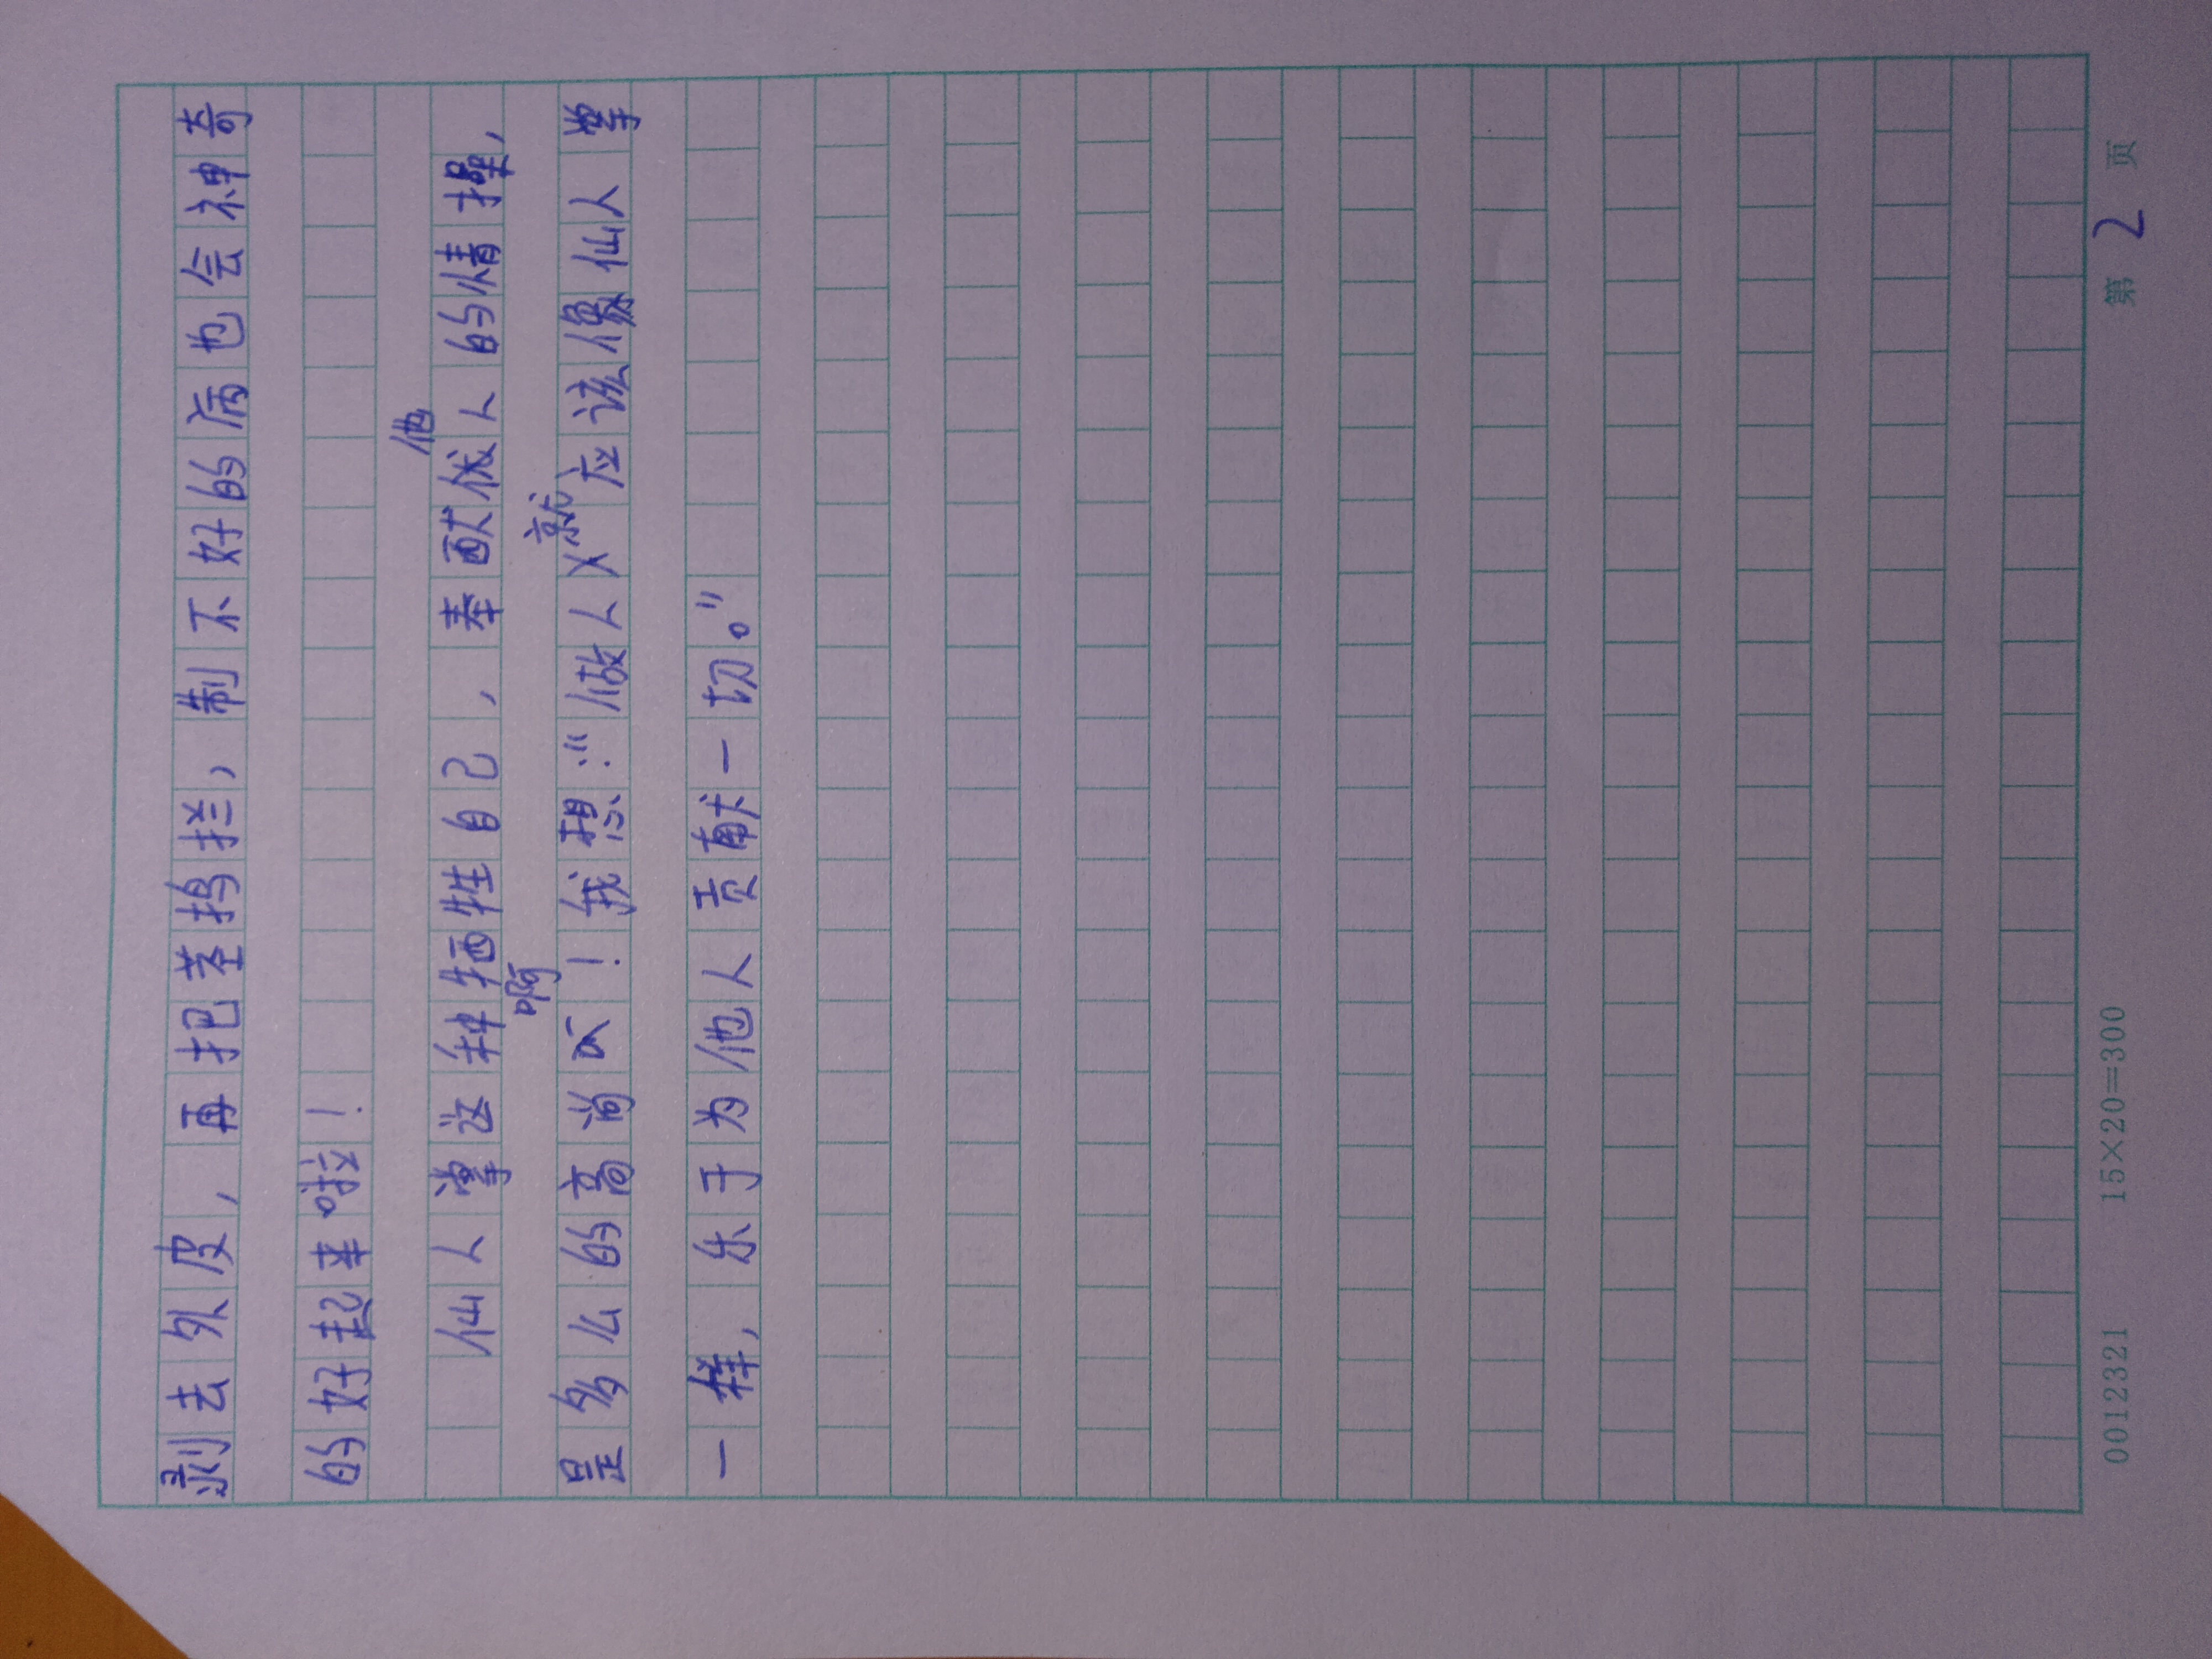 剥去外皮，再把茎捣拦，制不好的病也会神奇
的好起来啦！
仙人掌这种牺牲自己，奉献他人的情操，
是多么的高尚啊！我想：“做人就应该像仙人掌
一样，乐于为他人贡献一切。”
0012321 15×20=300 第 2 页